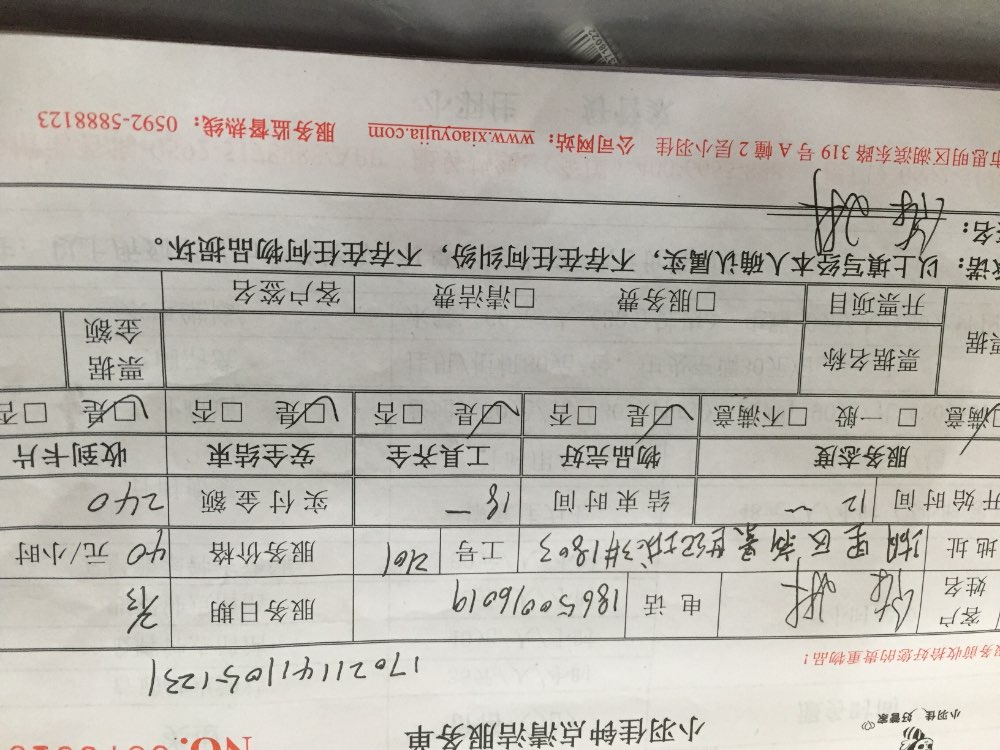 小羽佳 好管家
小羽佳钟点清洁服务单
NO.
服务前收拾好您的贵重物品！
170211411051231
客户姓名 电话 18650016019 服务日期 2/13
地址 湖里区 3#1803 工号 2401 服务价格 40 元/小时
开始时间 12 — 结束时间 18— 实付金额 240
服务态度 物品完好 工具齐全 安全结束 收到卡片
☑满意 □一般 □不满意 ☑是 □否 ☑是 □否 ☑是 □否 ☑是 □否
票据 票据名称 票据金额
开票项目 □服务费 □清洁费 客户签名
承诺：以上填写经本人确认属实，不存在任何纠纷，不存在任何物品损坏。
签名：
市思明区湖滨东路 319 号 A 幢 2 层小羽佳 公司网站：www.xiaoyujia.com 服务监督热线：0592-5888123